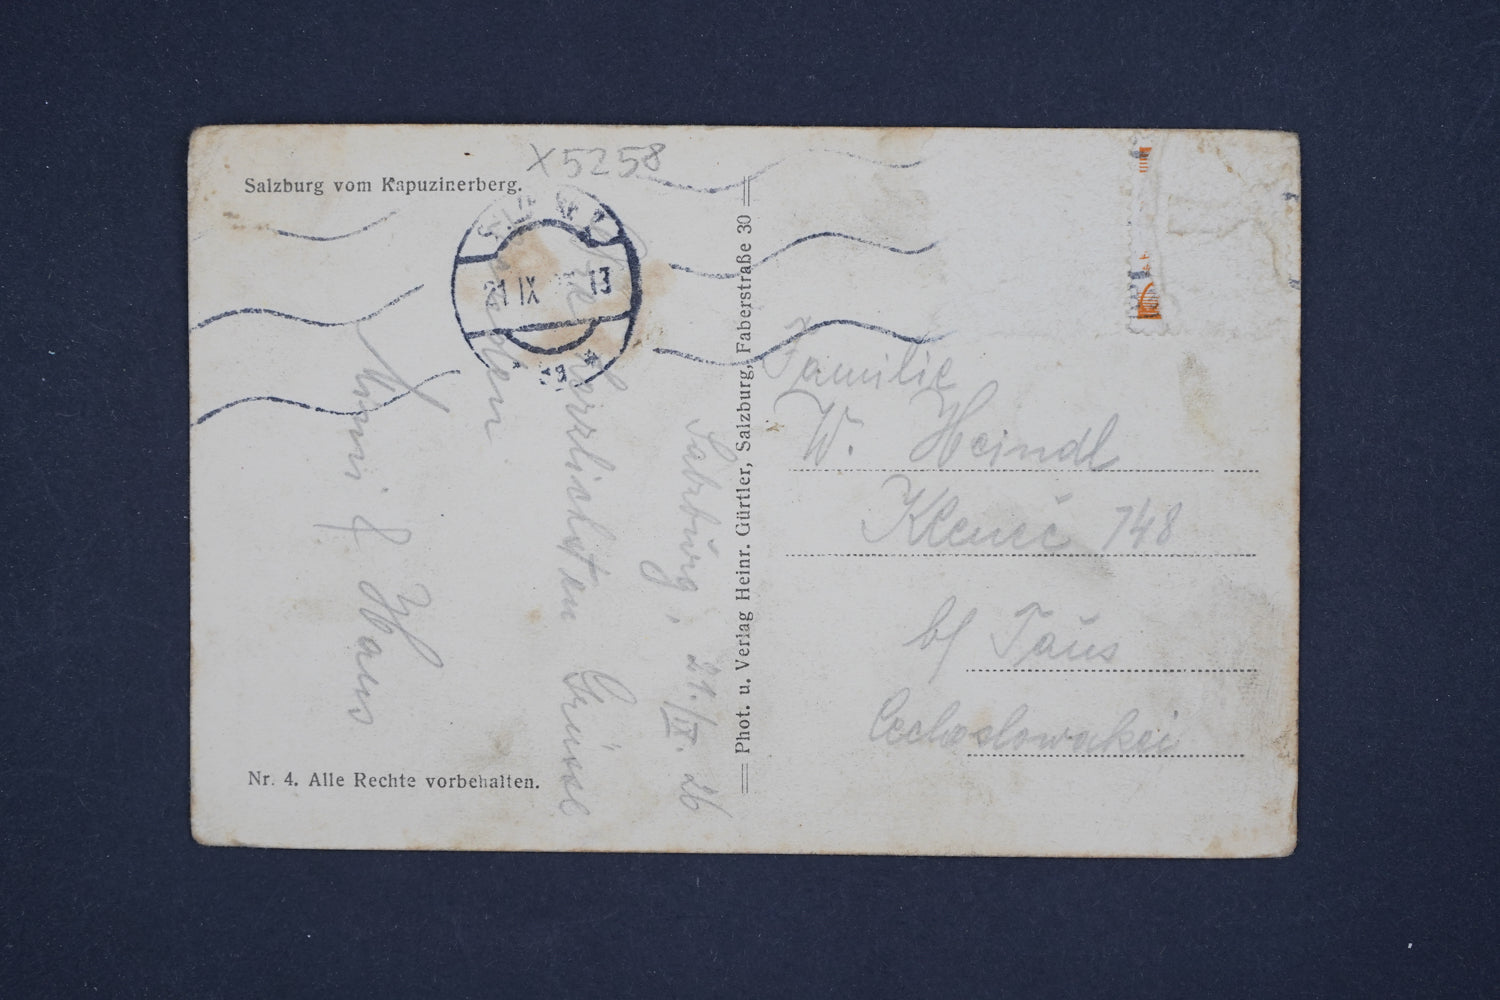 X5258
Salzburg vom Kapuzinerberg.
21 IX 13
Salzburg, 21./IX. 26
Die herzlichsten Grüsse
senden
Hans
Nr. 4. Alle Rechte vorbehalten.
Phot. u. Verlag Heinr. Gürtler, Salzburg, Faberstraße 30
Familie
W. Heindl
Klenič 148
b/ Taus
Čechoslowakei